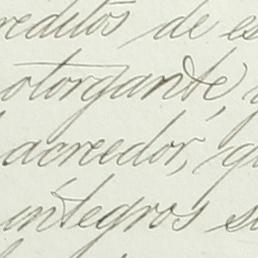 reditos de es
otorgante,
acreedor, qu
integros su